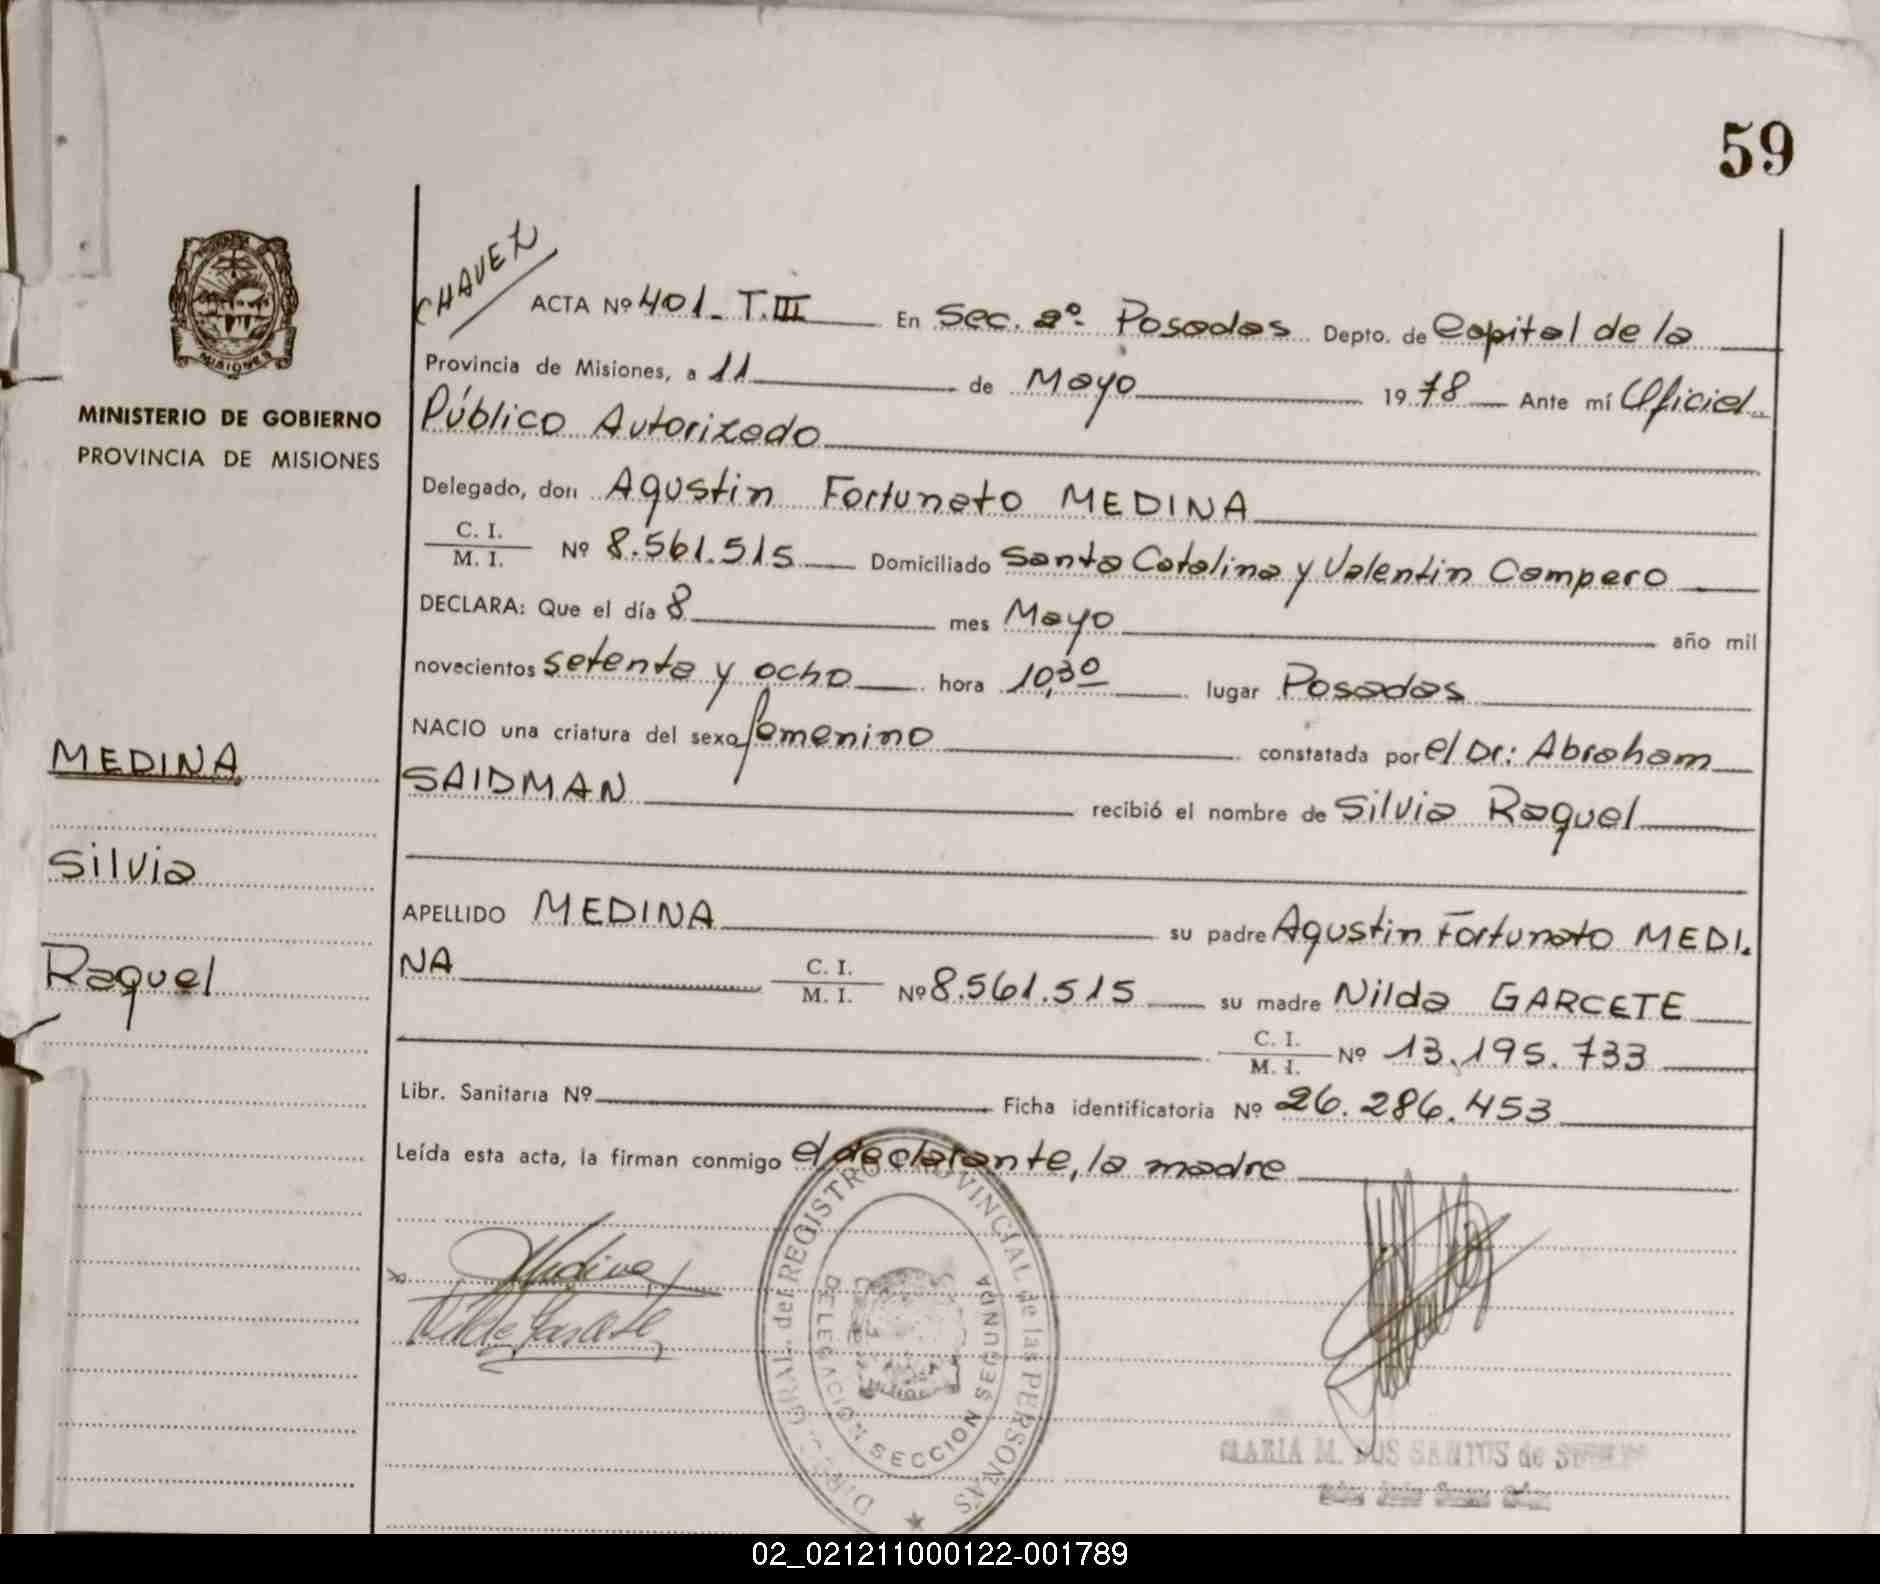 59
CHAVEZ
ACTA Nº 401_ T.III En Sec. 2º Posadas Depto. de Capital de la
Provincia de Misiones, a 11 de Mayo 1978 Ante mí Oficial
Público Autorizado
Delegado, don Agustin Fortunato MEDINA
C. I.
M. I. Nº 8.561.515 Domiciliado Santa Catalina y Valentin Campero
DECLARA: Que el día 8 mes Mayo año mil
novecientos setenta y ocho hora 10,30 lugar Posadas
NACIO una criatura del sexo femenino constatada por el Dr: Abraham
SAIDMAN recibió el nombre de Silvia Raquel
APELLIDO MEDINA su padre Agustin Fortunato MEDI.
NA C. I.
M. I. Nº 8.561.515 su madre Nilda GARCETE
C. I.
M. I. Nº 13.195.733
Libr. Sanitaria Nº Ficha identificatoria Nº 26.286.453
Leída esta acta, la firman conmigo el declarante, la madre
MISIONES
MINISTERIO DE GOBIERNO
PROVINCIA DE MISIONES
MEDINA
Silvia
Raquel
Medina
Nilda Garcete
GRAL. del REGISTRO PROVINCIAL de las PERSONAS
DELEGACION SECCION SEGUNDA
MARIA M. DOS SANTOS de
02_021211000122-001789